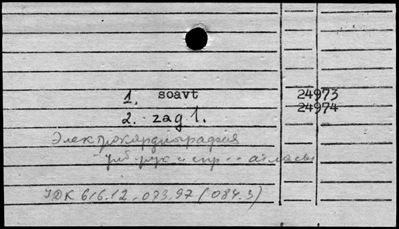 1. soavt 24973
2. zag 1. 24974
Электрокардиография
УДК 616.12-073.97 (084.3)